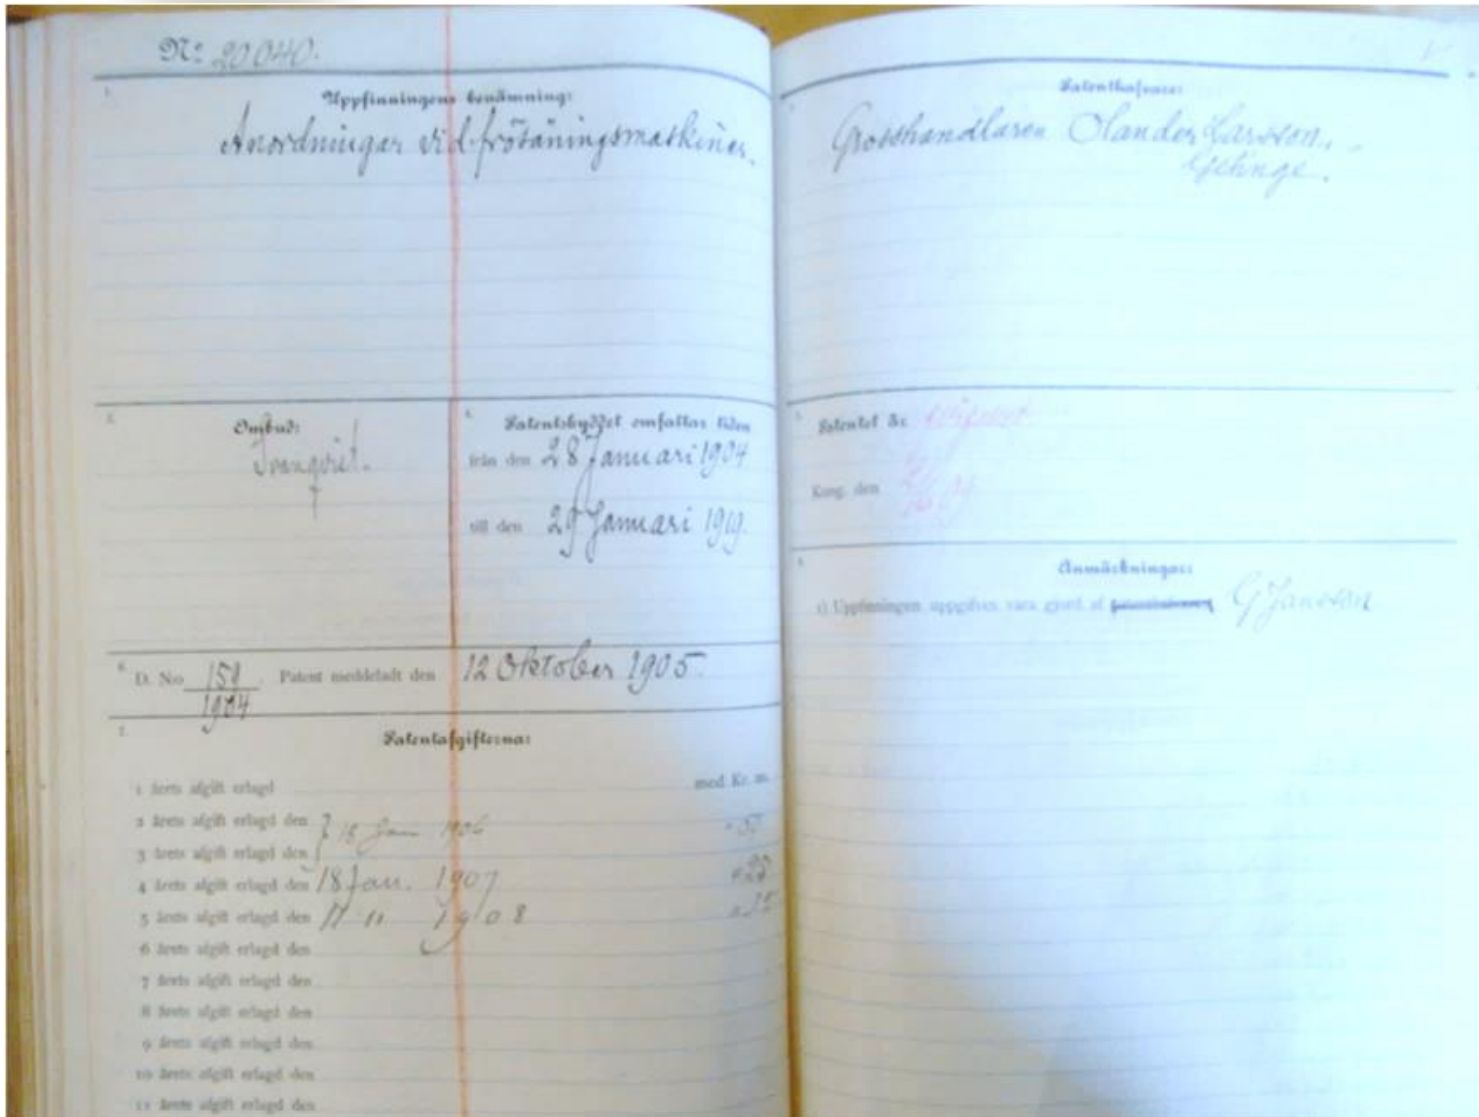 No 20040.
1.
Uppfinningens benämning:
Anordningar vid frösåningsmaskiner.
Ombud:
från den 28 Januari 1904
Patentskyddet omfattar tiden
till den 29 Januari 1919.
D. No 159
1904
Patent meddeladt den 12 Oktober 1905.
Patentafgifterna:
1 årets afgift erlagd med Kr. m.
2 årets afgift erlagd den 18 Jan 1906
3 årets afgift erlagd den
4 årets afgift erlagd den 18 Jan. 1907
5 årets afgift erlagd den 17 " 1908
6 årets afgift erlagd den
7 årets afgift erlagd den
8 årets afgift erlagd den
9 årets afgift erlagd den
10 årets afgift erlagd den
11 årets afgift erlagd den
Patenthafvare:
Grosshandlaren Olander Larsson,
Getinge.
Patentet är
Kung. den
Anmärkningar:
1) Uppfinningen uppgifves vara gjord af patenthafvaren G Jansson